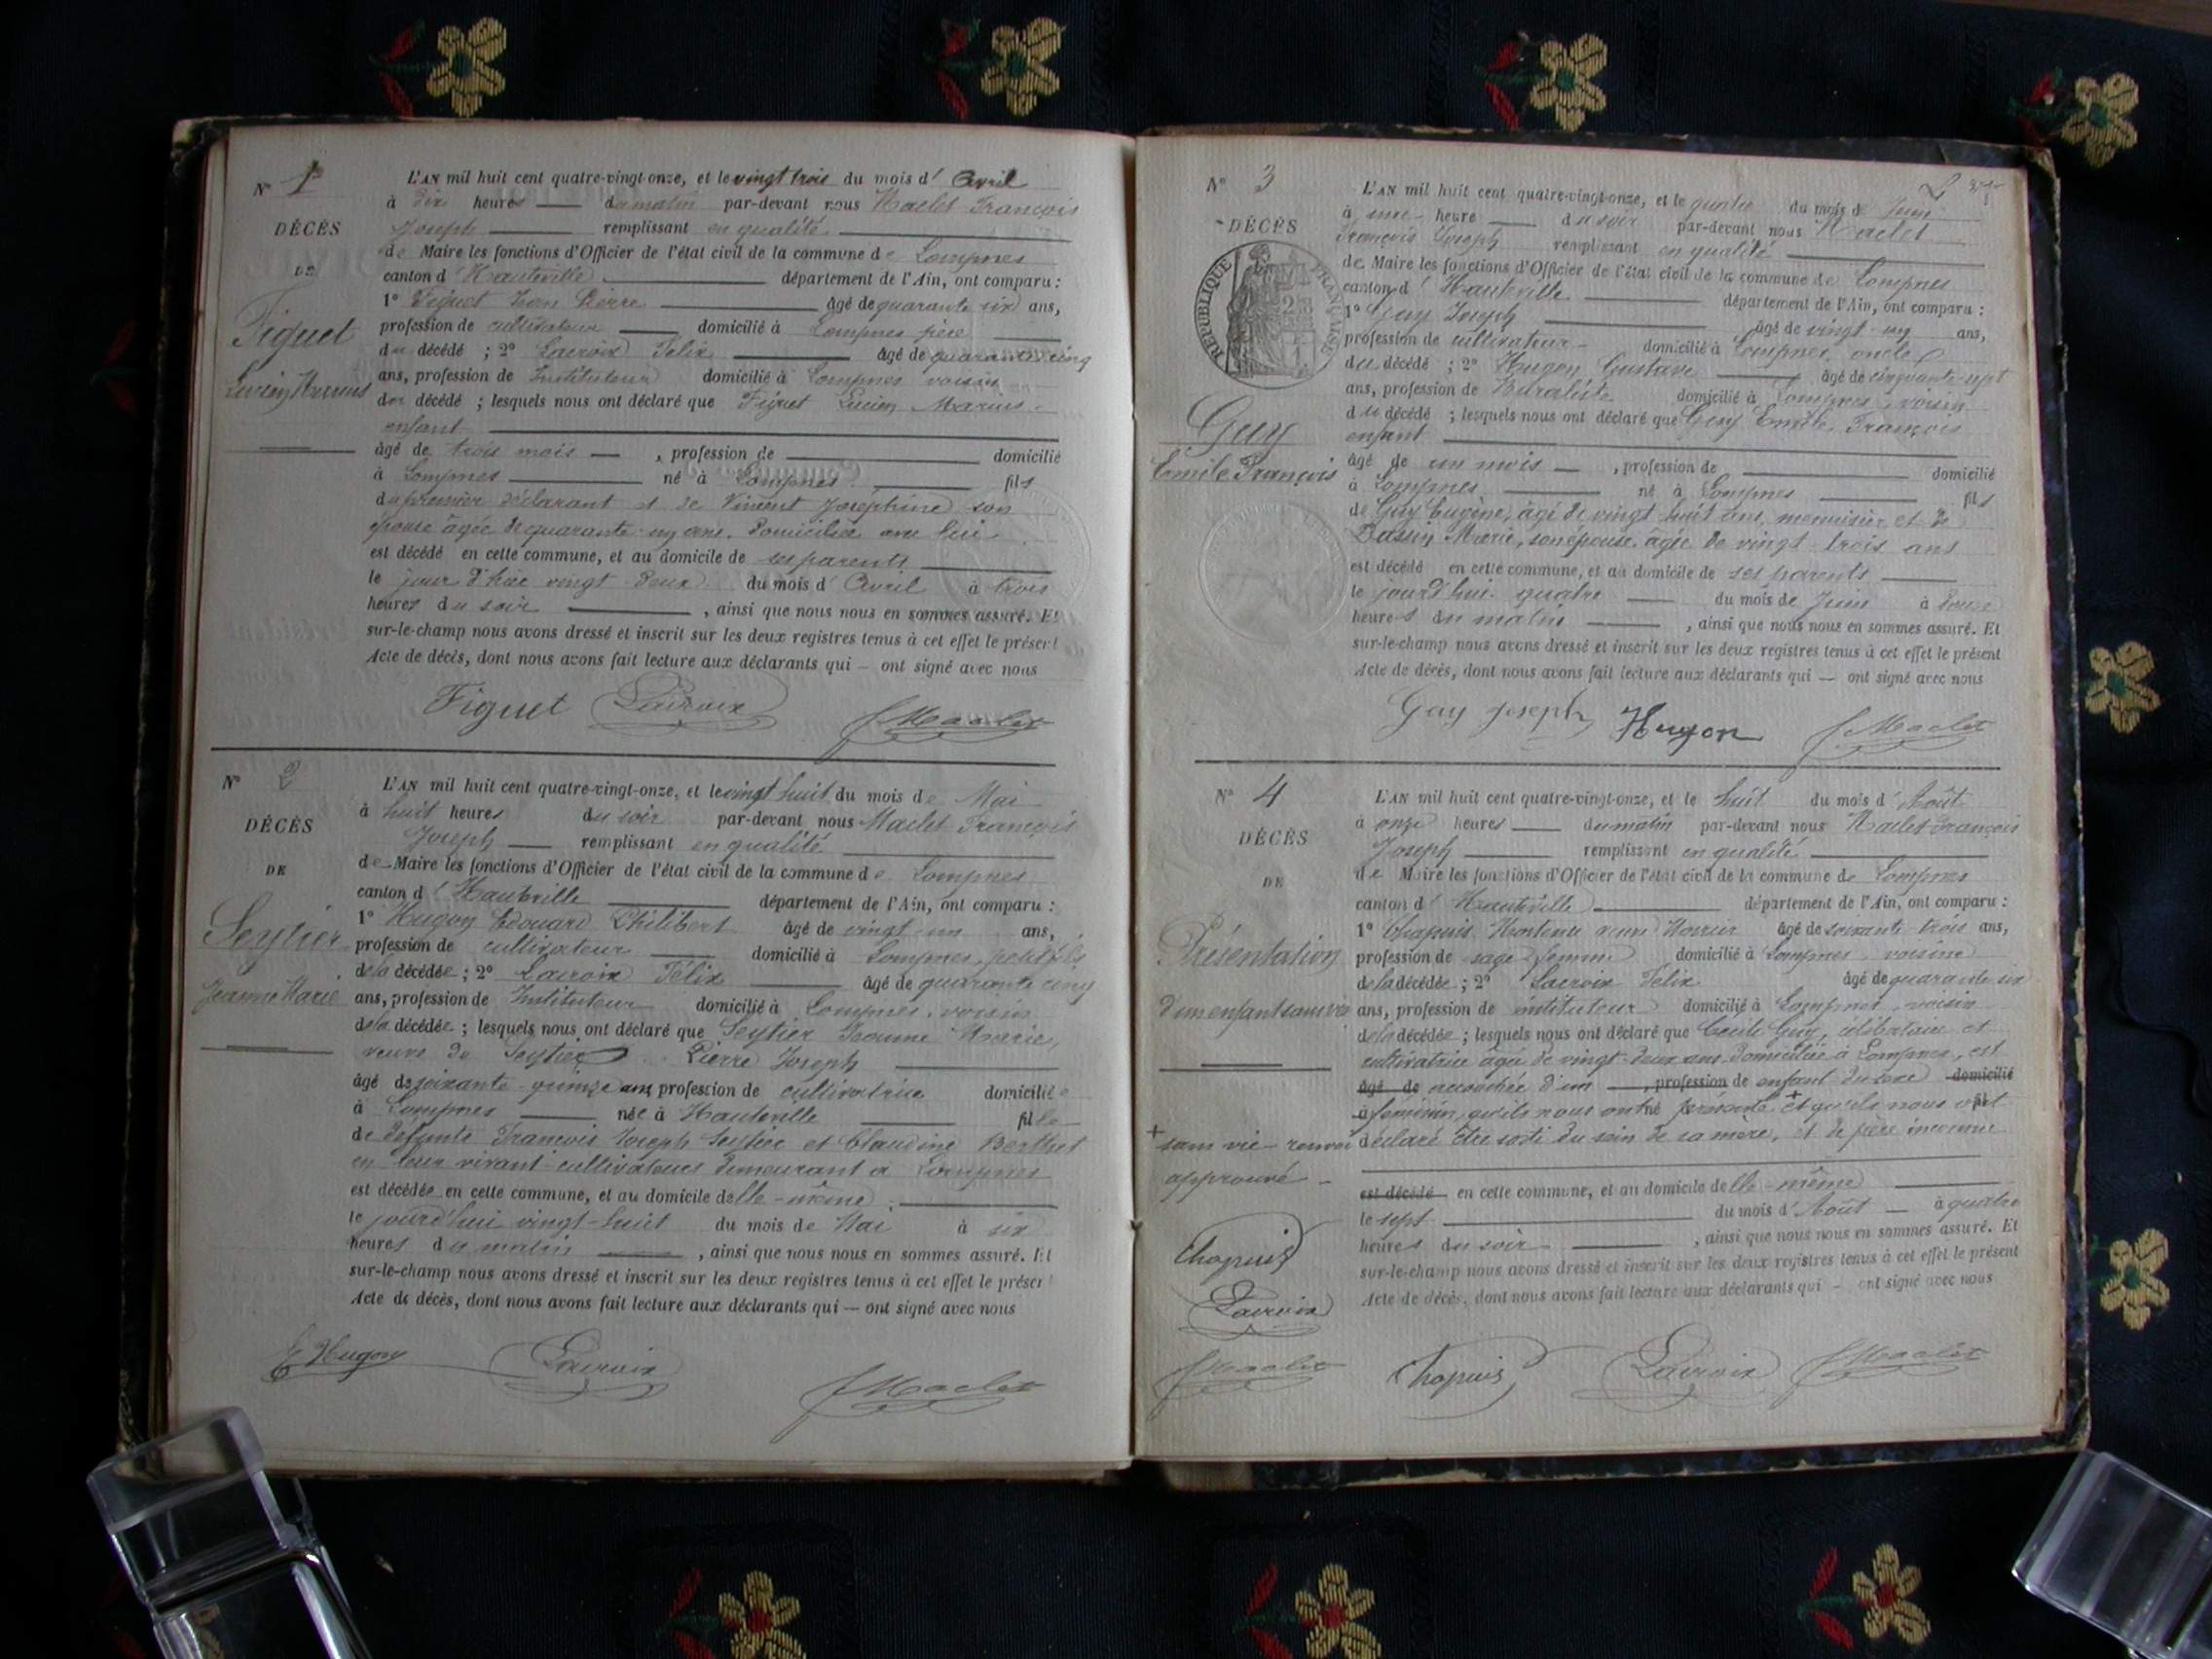 N° 1
DÉCÈS
DE
Figuet
Lucien Marius
L'AN mil huit cent quatre-vingt-onze, et le vingt trois du mois d' Avril
à dix heures du matin par-devant nous Maclet François
Joseph remplissant en qualité
de Maire les fonctions d'Officier de l'état civil de la commune de Lompnes
canton d' Hauteville département de l'Ain, ont comparu :
1° Figuet Jean Pierre âgé de quarante six ans,
profession de cultivateur domicilié à Lompnes père
du décédé ; 2° Lacroix Félix âgé de quarante cinq
ans, profession de Instituteur domicilié à Lompnes voisin
du décédé ; lesquels nous ont déclaré que Figuet Lucien Marius
enfant
âgé de trois mois , profession de domicilié
à Lompnes né à Lompnes fils
du premier déclarant et de Vincent Joséphine son
épouse âgée de quarante un ans, domiciliée avec lui
est décédé en cette commune, et au domicile de ses parents
le jour d'hier vingt deux du mois d' Avril à trois
heures du soir , ainsi que nous nous en sommes assuré. Et
sur-le-champ nous avons dressé et inscrit sur les deux registres tenus à cet effet le présent
Acte de décès, dont nous avons fait lecture aux déclarants qui — ont signé avec nous
Figuet Lacroix J Maclet
N° 2
DÉCÈS
DE
Seytier
Jeanne Marie
L'AN mil huit cent quatre-vingt-onze, et le vingt huit du mois de Mai
à huit heures du soir par-devant nous Maclet François
Joseph remplissant en qualité
de Maire les fonctions d'Officier de l'état civil de la commune de Lompnes
canton d' Hauteville département de l'Ain, ont comparu :
1° Hugon Edouard Philibert âgé de vingt un ans,
profession de cultivateur domicilié à Lompnes, petit fils
de la décédée ; 2° Lacroix Félix âgé de quarante cinq
ans, profession de Instituteur domicilié à Lompnes, voisin
de la décédée ; lesquels nous ont déclaré que Seytier Jeanne Marie,
veuve de Seytier Pierre Joseph
âgé de soixante quinze ans profession de cultivatrice domiciliée
à Lompnes née à Hauteville fille
de défunts François Joseph Seytier et Claudine Berthet
en leur vivant cultivateurs demeurant à Lompnes
est décédée en cette commune, et au domicile d'elle-même
le jourd'hui vingt-huit du mois de Mai à six
heures du matin , ainsi que nous nous en sommes assuré. Et
sur-le-champ nous avons dressé et inscrit sur les deux registres tenus à cet effet le présent
Acte de décès, dont nous avons fait lecture aux déclarants qui — ont signé avec nous
E Hugon Lacroix J Maclet
2
N° 3
DÉCÈS
RÉPUBLIQUE FRANÇAISE
Guy
Emile François
L'AN mil huit cent quatre-vingt-onze, et le quatre du mois de Juin
à une heure du soir par-devant nous Maclet
François Joseph remplissant en qualité
de Maire les fonctions d'Officier de l'état civil de la commune de Lompnes
canton d' Hauteville département de l'Ain, ont comparu :
1° Guy Joseph âgé de vingt un ans,
profession de cultivateur domicilié à Lompnes, oncle
du décédé ; 2° Hugon Gustave âgé de cinquante sept
ans, profession de Buraliste domicilié à Lompnes, voisin
du décédé ; lesquels nous ont déclaré que Guy Emile, François
enfant
âgé de un mois , profession de domicilié
à Lompnes né à Lompnes fils
de Guy Eugène, âgé de vingt huit ans, menuisier et de
Bassin Marie, son épouse, âgée de vingt trois ans
est décédé en cette commune, et au domicile de ses parents
le jourd'hui quatre du mois de Juin à douze
heures du matin , ainsi que nous nous en sommes assuré. Et
sur-le-champ nous avons dressé et inscrit sur les deux registres tenus à cet effet le présent
Acte de décès, dont nous avons fait lecture aux déclarants qui — ont signé avec nous
Guy Joseph Hugon J Maclet
N° 4
DÉCÈS
DE
Présentation
d'un enfant sans vie
L'AN mil huit cent quatre-vingt-onze, et le huit du mois d' Août
à onze heures du matin par-devant nous Maclet François
Joseph remplissant en qualité
de Maire les fonctions d'Officier de l'état civil de la commune de Lompnes
canton d' Hauteville département de l'Ain, ont comparu :
1° Chapuis Hortense veuve âgé de soixante trois ans,
profession de sage femme domicilié à Lompnes voisine
de la décédée ; 2° Lacroix Félix âgé de quarante six
ans, profession de instituteur domicilié à Lompnes, voisin
de la décédée ; lesquels nous ont déclaré que Cécile Guy, célibataire et
cultivatrice âgée de vingt-deux ans domiciliée à Lompnes, est
âgé de accouchée d'un , profession de enfant du sexe domicilié
à féminin, qu'ils nous ont né présenté + et qu'ils nous ont fil
déclaré être sorti du sein de sa mère, et de père inconnu
+ sans vie - renvoi
approuvé -
est décédé en cette commune, et au domicile d'elle-même
le sept du mois d' Août à quatre
heures du soir , ainsi que nous nous en sommes assuré. Et
sur-le-champ nous avons dressé et inscrit sur les deux registres tenus à cet effet le présent
Acte de décès, dont nous avons fait lecture aux déclarants qui — ont signé avec nous
Chapuis
Lacroix
J Maclet
Chapuis Lacroix J Maclet